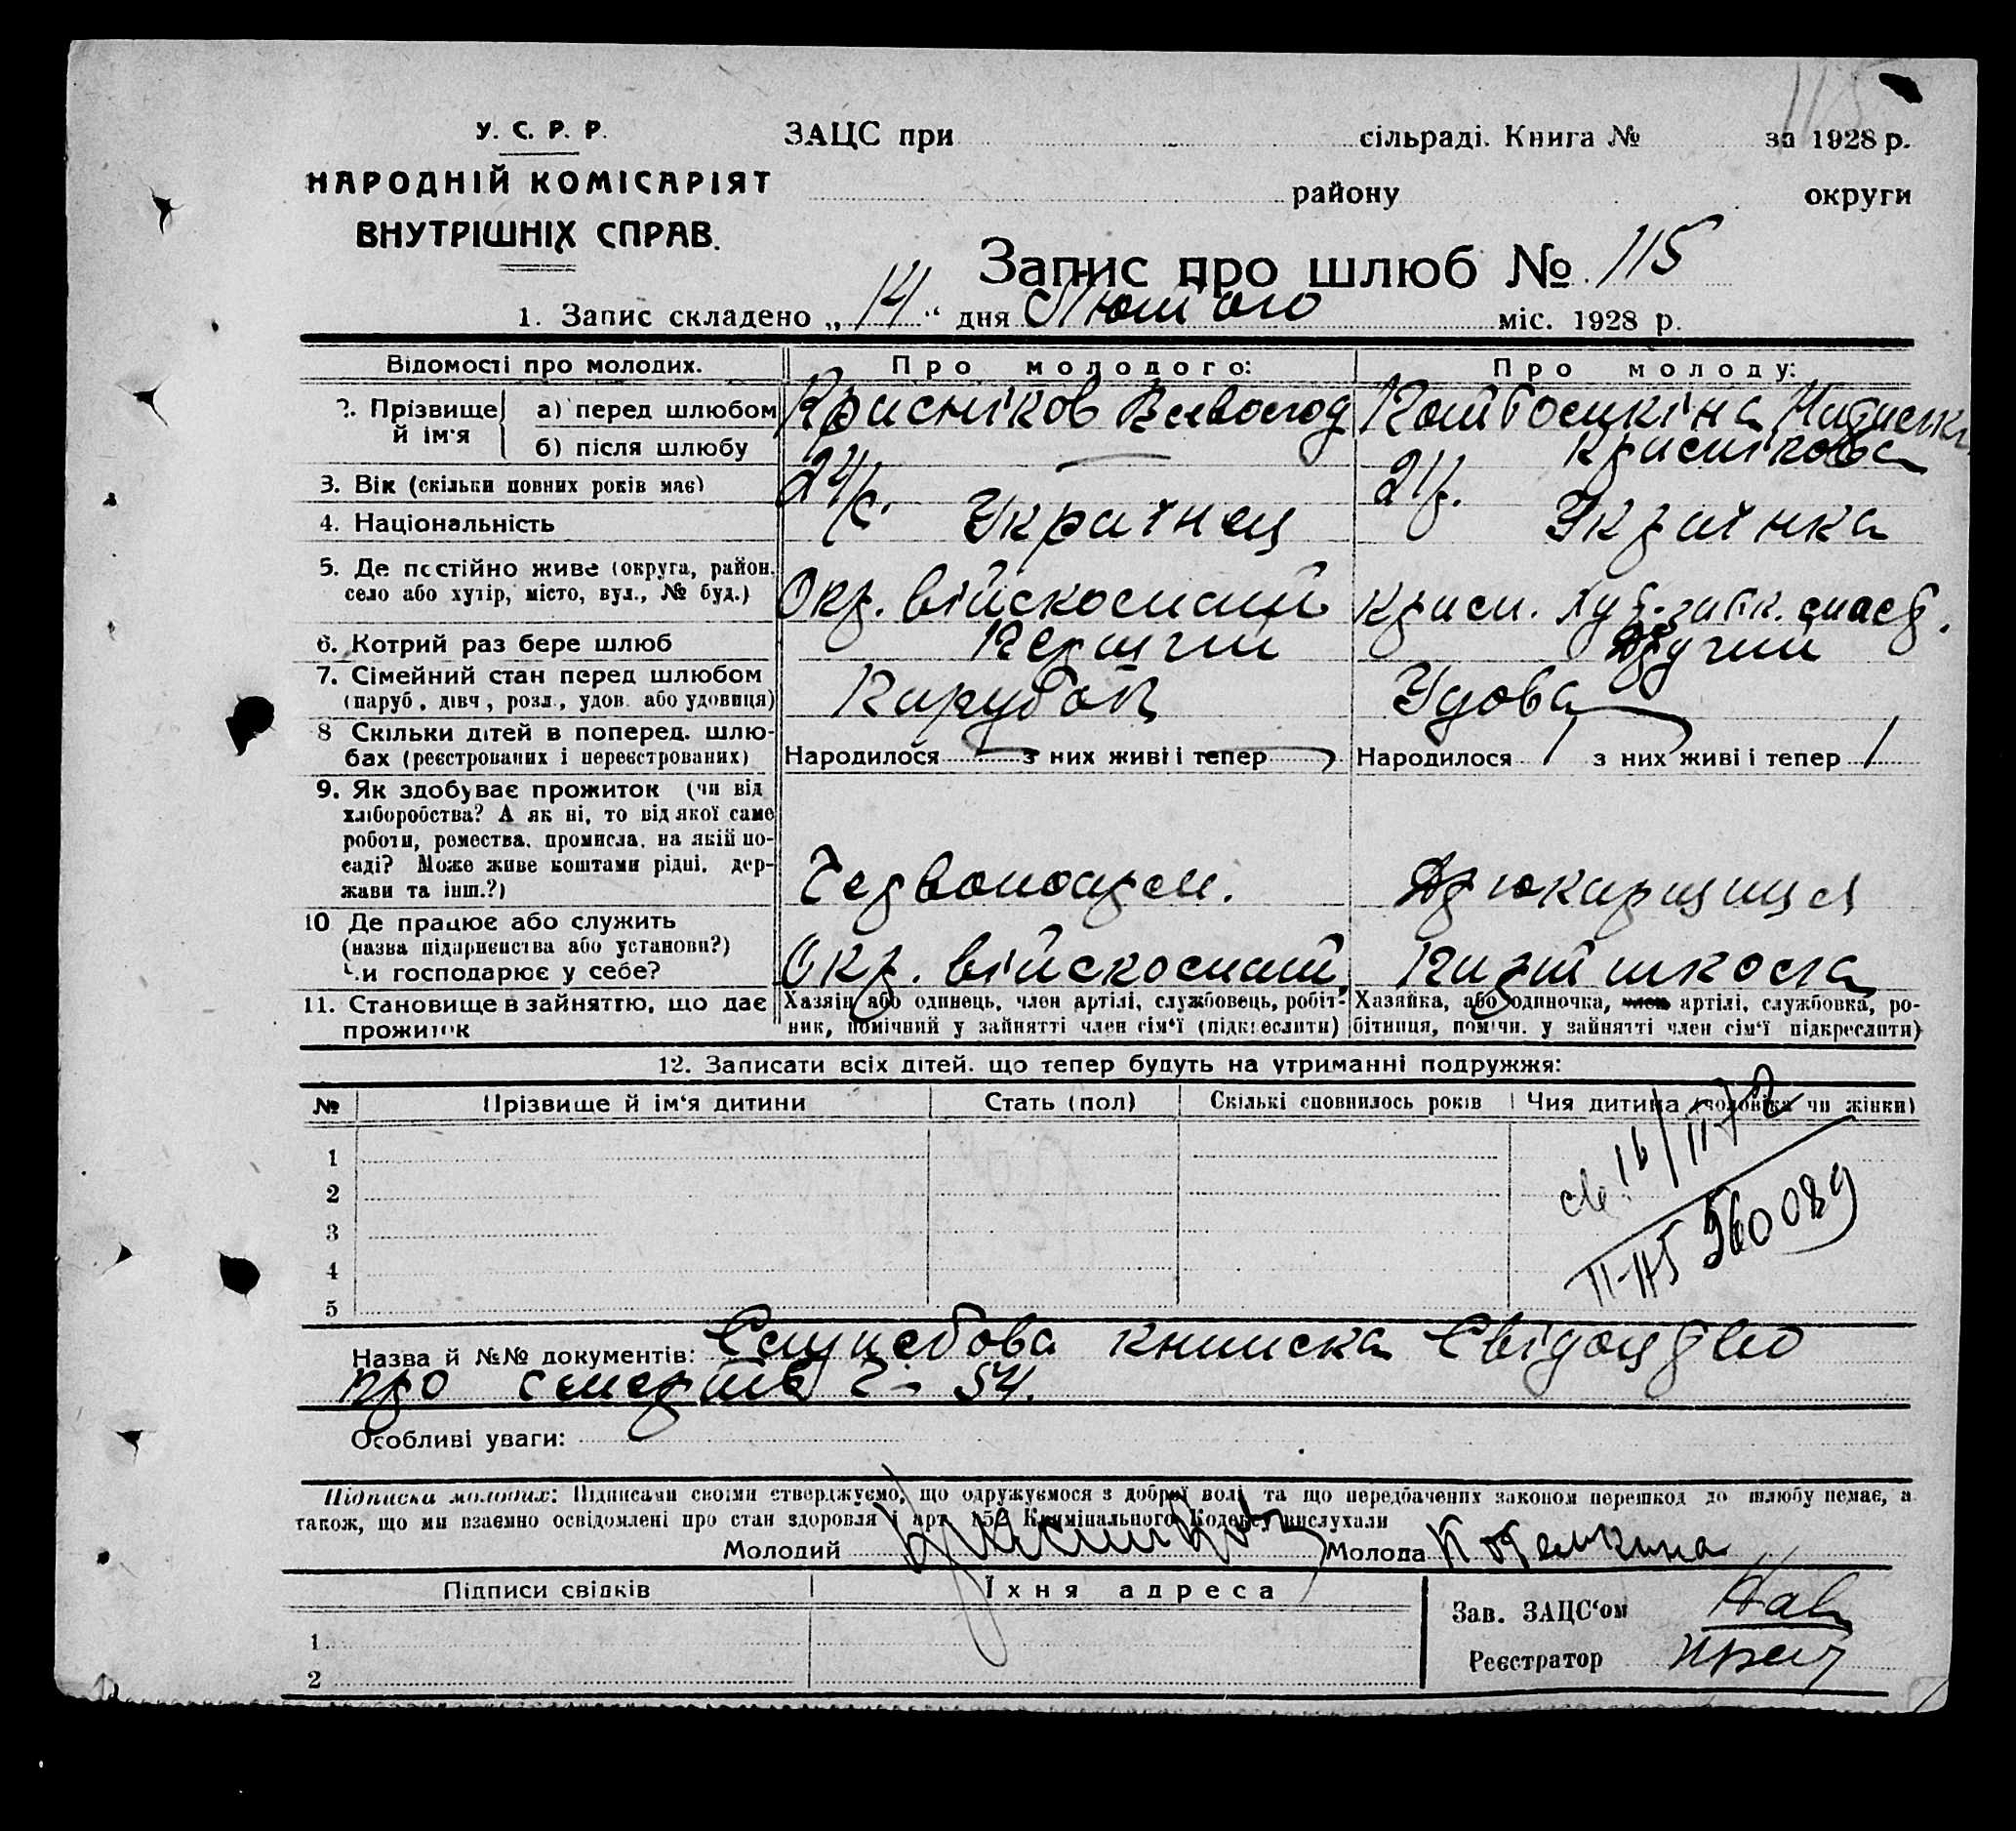 115
У. С. Р. Р.
НАРОДНІЙ КОМІСАРІЯТ
ВНУТРІШНІХ СПРАВ.
ЗАЦС при сільраді. Книга № за 1928 р.
району округи
Запис про шлюб № 115
1. Запис складено „14“ дня Лютого міс. 1928 р.
Відомості про молодих. Про молодого: Про молоду:
2. Прізвище й ім'я
а) перед шлюбом Красніков Всеволод
б) після шлюбу Краснікова
3. Вік (скільки повних років має) 24 р. 21 р.
4. Національність Українец Українка
5. Де постійно живе (округа, район, село або хутір, місто, вул., № буд.) Окр. війскомат
6. Котрий раз бере шлюб Перший Другий
7. Сімейний стан перед шлюбом (паруб., дівч., розл., удов. або удовиця) Парубок Удова
8 Скільки дітей в поперед. шлюбах (реєстрованих і нереєстрованих) Народилося — з них живі і тепер — Народилося 1 з них живі і тепер 1
9. Як здобуває прожиток (чи від
хліборобства? А як ні, то від якої саме
роботи, ремества, промисла, на якій по-
саді? Може живе коштами рідні, дер-
жави та інш.?) Червоноарм. Друкарщиця
10 Де працює або служить
(назва підприємства або установи?)
Чи господарює у себе? Окр. війскомат. Парт школа
11. Становище в зайняттю, що дає прожиток
Хазяїн або одинець, член артілі, службовець, робіт-
ник, помічний у зайнятті член сім'ї (підкреслити)
Хазяйка, або одиночка, член артілі, службовка, ро-
бітниця, помічн. у зайнятті член сім'ї підкреслити)
12. Записати всіх дітей, що тепер будуть на утриманні подружжя:
№ Прізвище й ім'я дитини Стать (пол) Скількі сповнилось років Чия дитина (чоловіка чи жінки)
1
2
3
4
5
16/II-72
560089
Назва й №№ документів: Служебова книжска Свідоцтво
про смерть Ч- 54.
Особливі уваги:
Підписка молодих: Підписами своїми стверджуємо, що одружуємося з доброї волі та що передбачених законом перешкод до шлюбу немає, а
також, що ми взаємно освідомлені про стан здоровля і арт. 152 Кримінального Кодексу вислухали
Молодий Молода
Підписи свідків Їхня адреса
1
2
Зав. ЗАЦС'ом
Реєстратор